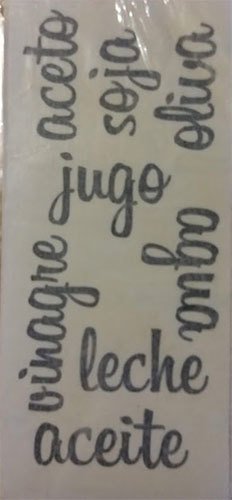 aceto
soja
oliva
jugo
agua
vinagre
leche
aceite